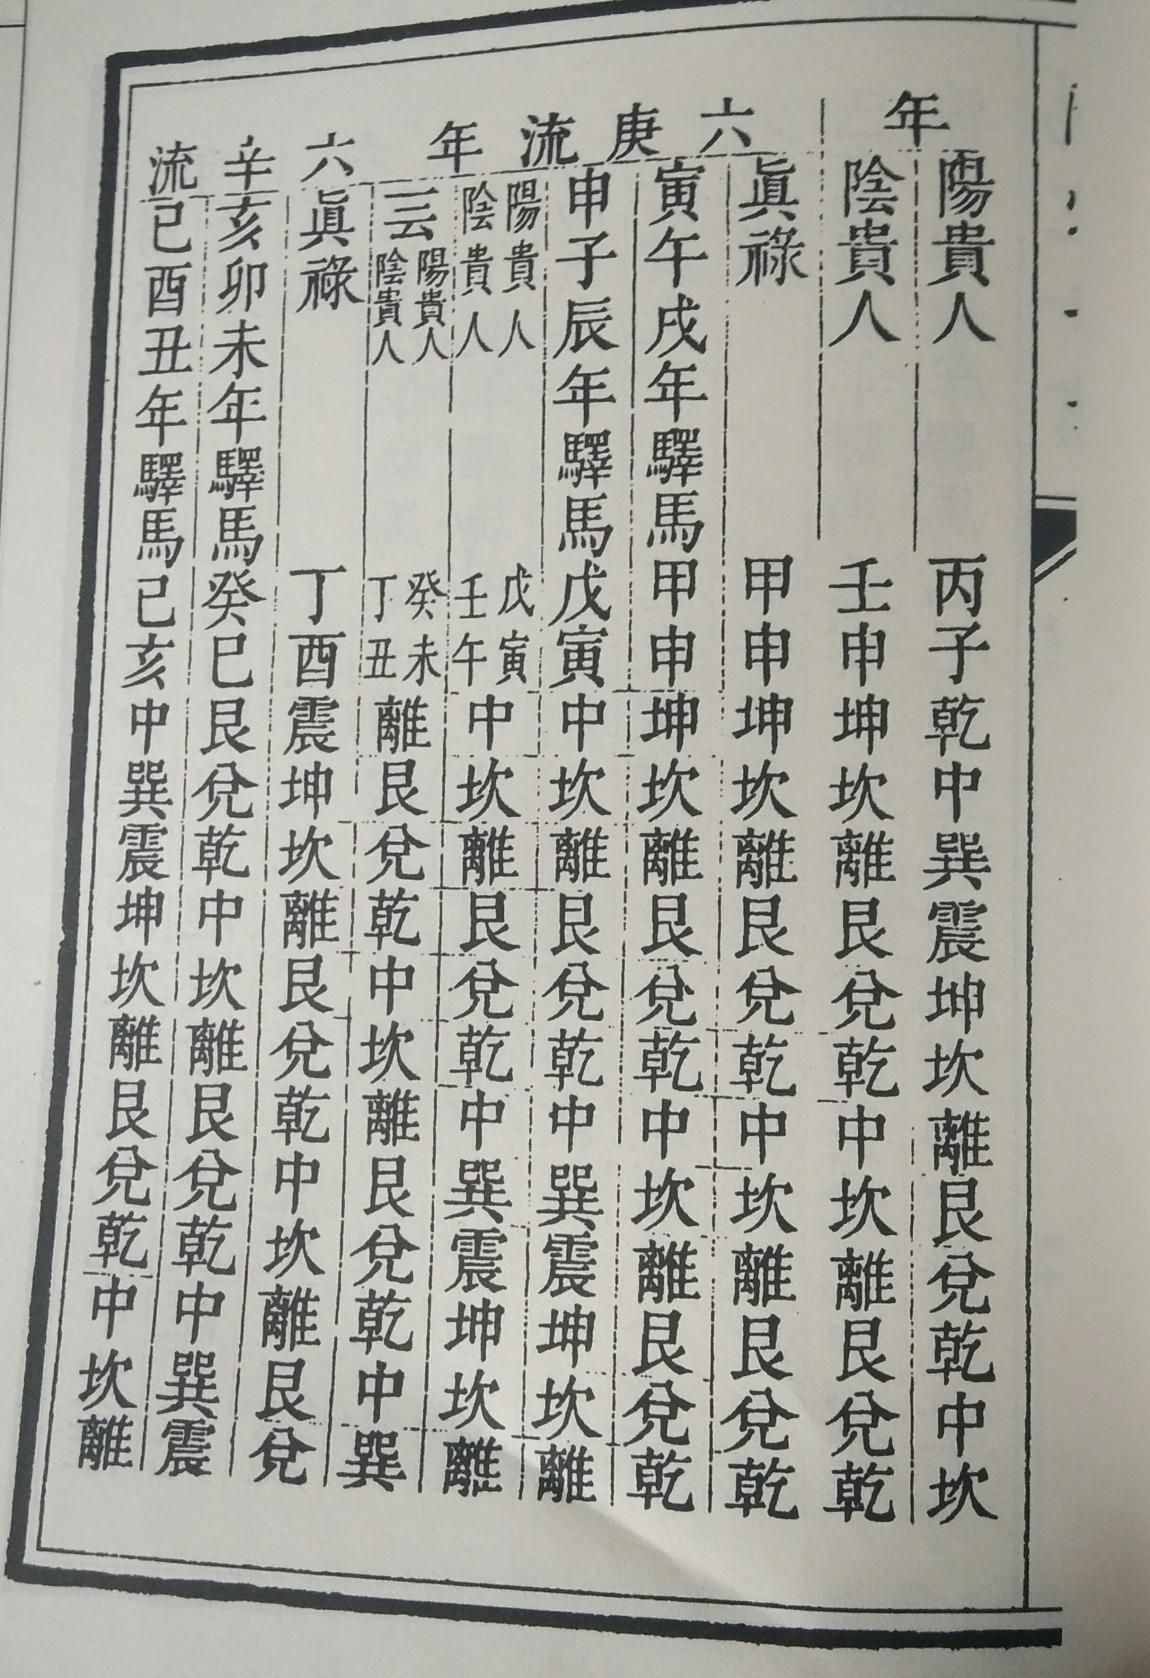 年
陽貴人丙子乾中巽震坤坎離艮兌乾中坎
陰貴人壬申坤坎離艮兌乾中坎離艮兌乾
六庚流年
眞祿甲申坤坎離艮兌乾中坎離艮兌乾
寅午戌年驛馬甲申坤坎離艮兌乾中坎離艮兌乾
申子辰年驛馬戊寅中坎離艮兌乾中巽震坤坎離
陽貴人陰貴人戊寅壬午中坎離艮兌乾中巽震坤坎離
一云陽貴人陰貴人癸未丁丑離艮兌乾中坎離艮兌乾中巽
六辛流
眞祿丁酉震坤坎離艮兌乾中坎離艮兌
亥卯未年驛馬癸巳艮兌乾中坎離艮兌乾中巽震
巳酉丑年驛馬己亥中巽震坤坎離艮兌乾中坎離